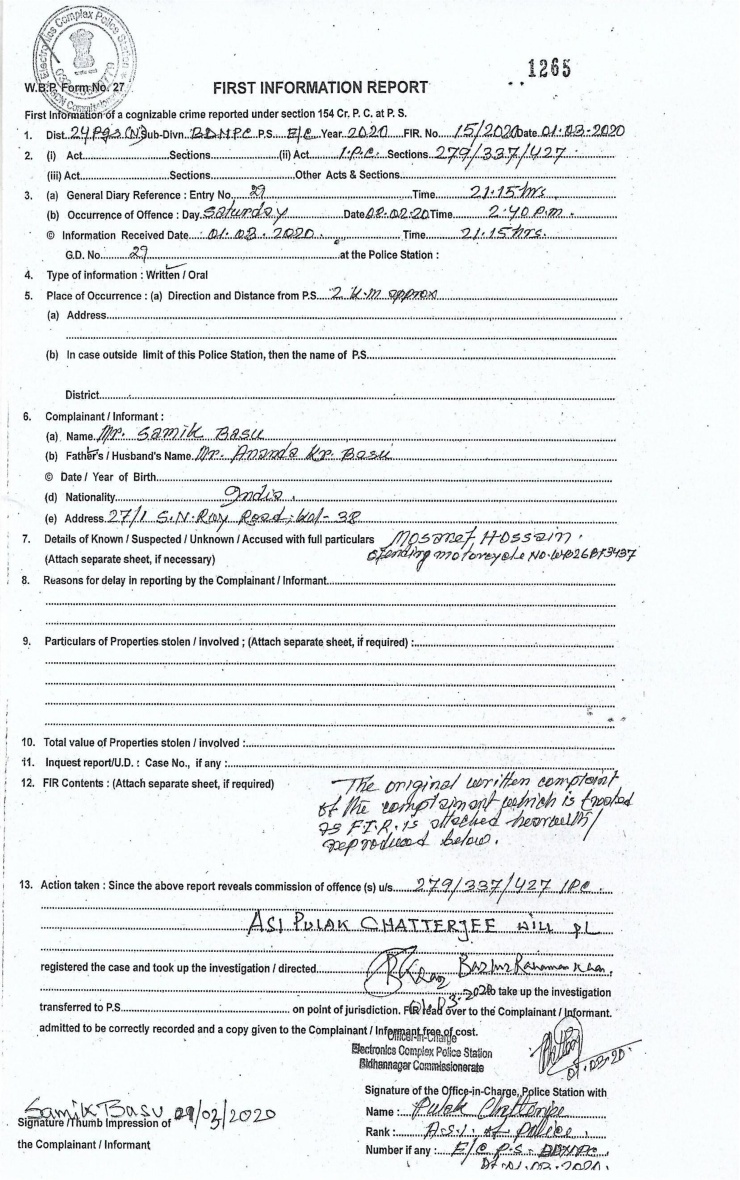 Electronics Complex Police Station
1265
W.B.P. Form No. 27
FIRST INFORMATION REPORT
First Information of a cognizable crime reported under section 154 Cr. P. C. at P. S.
1. Dist. 24 Pgs (N) Sub-Divn. BDNPC P.S. E/C Year 2020 FIR. No. 15/2020 Date 01.03.2020
2. (i) Act Sections (ii) Act I.P.C. Sections 279/337/427
(iii) Act Sections Other Acts & Sections
3. (a) General Diary Reference : Entry No. 29 Time 21.15 hrs
(b) Occurrence of Offence : Day Saturday Date 08.02.20 Time 2.40 P.m.
© Information Received Date 01.03.2020 Time 21.15 hrs.
G.D. No. 29 at the Police Station :
4. Type of information : Written / Oral
5. Place of Occurrence : (a) Direction and Distance from P.S. 2 k.m approx
(a) Address
(b) In case outside limit of this Police Station, then the name of P.S.
District
6. Complainant / Informant :
(a) Name Mr. Samik Basu
(b) Father's / Husband's Name Mr. Ananda Kr. Basu
© Date / Year of Birth
(d) Nationality India.
(e) Address 27/1 S.N. Roy Road, Kol-38
7. Details of Known / Suspected / Unknown / Accused with full particulars Mosaref Hossain.
(Attach separate sheet, if necessary) offending motorcycle No.
8. Reasons for delay in reporting by the Complainant / Informant
9. Particulars of Properties stolen / involved ; (Attach separate sheet, if required) :
10. Total value of Properties stolen / involved :
11. Inquest report/U.D. : Case No., if any :
12. FIR Contents : (Attach separate sheet, if required) The original written complaint
of the complainant which is treated
as F.I.R. is attached herewith/
reproduced below.
13. Action taken : Since the above report reveals commission of offence (s) u/s 279/337/427 IPC.
ASI PULAK CHATTERJEE WILL PL
registered the case and took up the investigation / directed Bazlur Rahaman Khan.
to take up the investigation
transferred to P.S. on point of jurisdiction. FIR lead over to the Complainant / Informant.
admitted to be correctly recorded and a copy given to the Complainant / Informant free of cost.
Officer-in-Charge
Electronics Complex Police Station
Bidhannagar Commissionerate
01.03.20.
Signature of the Office-in-Charge, Police Station with
Samik Basu 01/03/2020
Name : Pulak Chatterjee
Signature /Thumb Impression of
Rank : A.S.I. of Police
the Complainant / Informant
Number if any : E/C P.S. BDNPC
Dt. 01.03.2020.